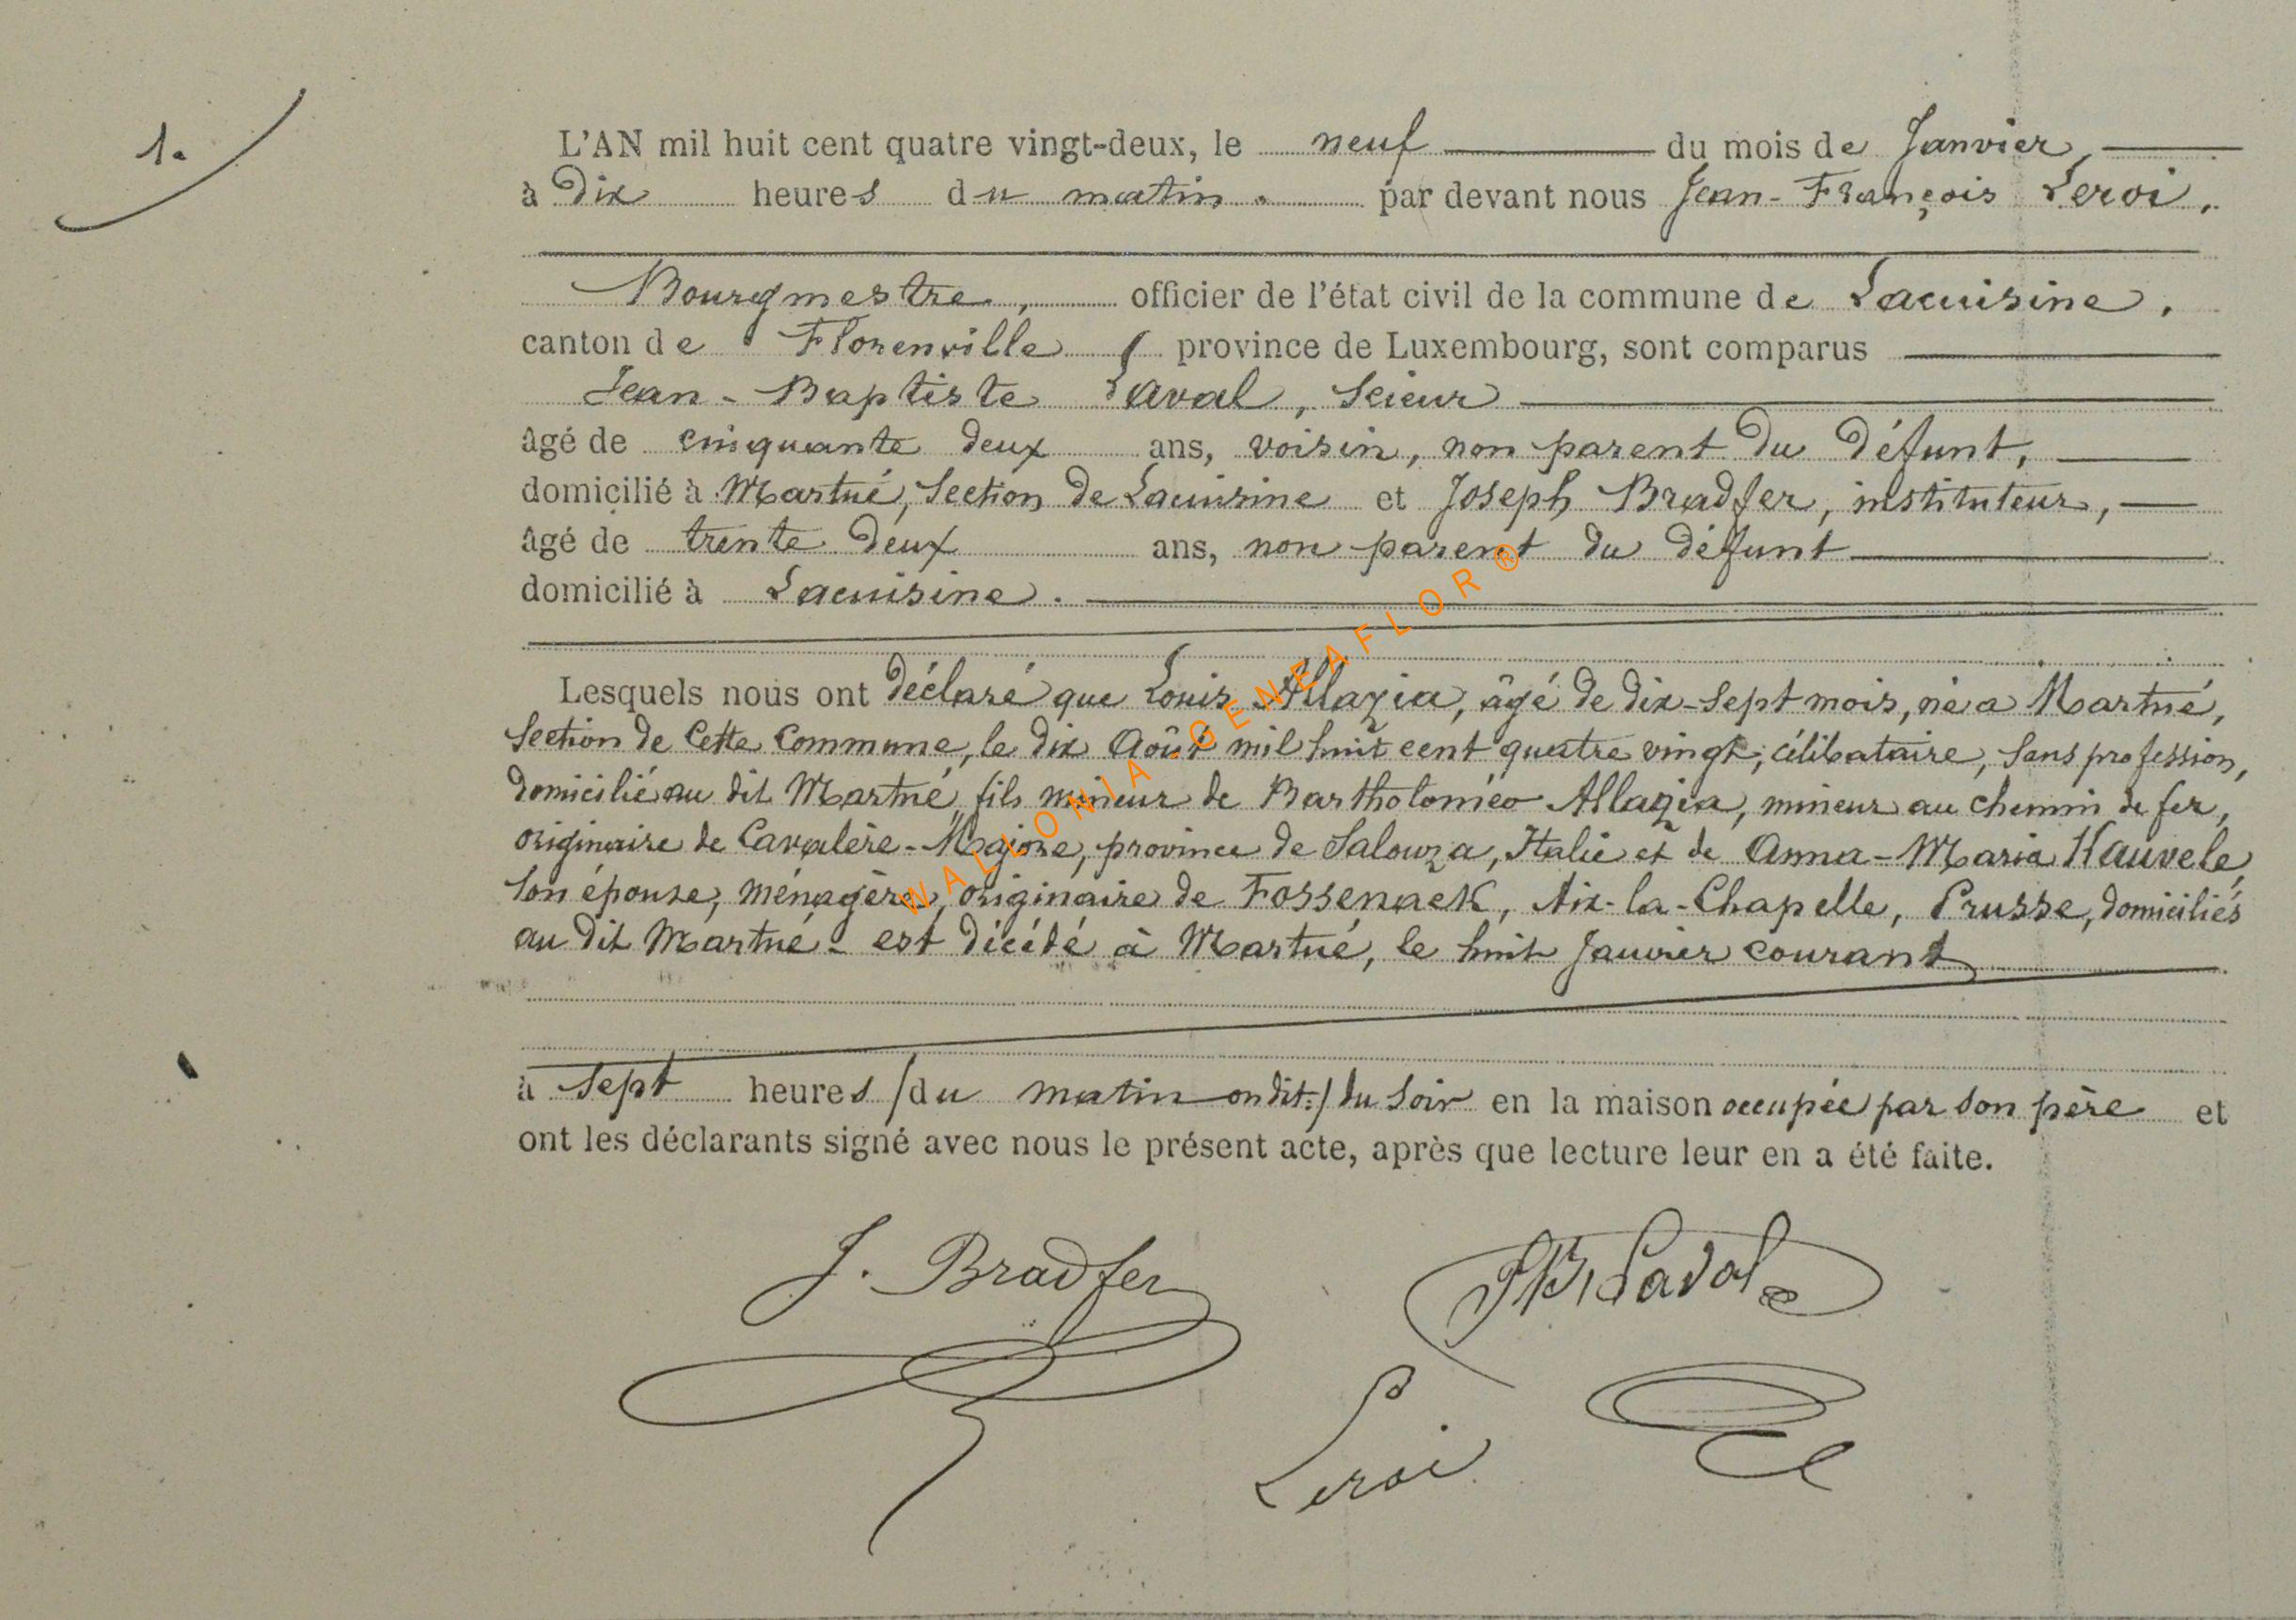 1.
L'AN mil huit cent quatre vingt-deux, le neuf du mois de Janvier,
à Dix heures du matin. par devant nous Jean-François Leroi,
Bourgmestre, officier de l'état civil de la commune de Lacuisine,
canton de Florenville, province de Luxembourg, sont comparus
Jean-Baptiste Laval, Scieur
âgé de cinquante deux ans, voisin, non parent du défunt,
domicilié à Martué, Section de Lacuisine et Joseph Bradfer, instituteur,
âgé de trente deux ans, non parent du défunt
domicilié à Lacuisine.
Lesquels nous ont déclaré que Louis Allazia, âgé de dix-sept mois, né a Martué,
Section de Cette Commune, le dix Août mil huit cent quatre vingt, célibataire, Sans profession,
domicilié au dit Martué, fils mineur de Bartholoméo Allazia, mineur au chemin de fer,
originaire de Cavalère-Majore, province de Salouza, Italie et de Anna-Maria Kauvele,
son épouse, ménagère, originaire de Fossenack, Aix-la-Chapelle, Prusse, domiciliés
au dit Martué - est décédé à Martué, le huit Janvier courant
à Sept heures /du matin on dit:/ du Soir en la maison occupée par son père et
ont les déclarants signé avec nous le présent acte, après que lecture leur en a été faite.
J. Bradfer
JB Laval
Leroi
WALLONIA-GENEAFLOR®